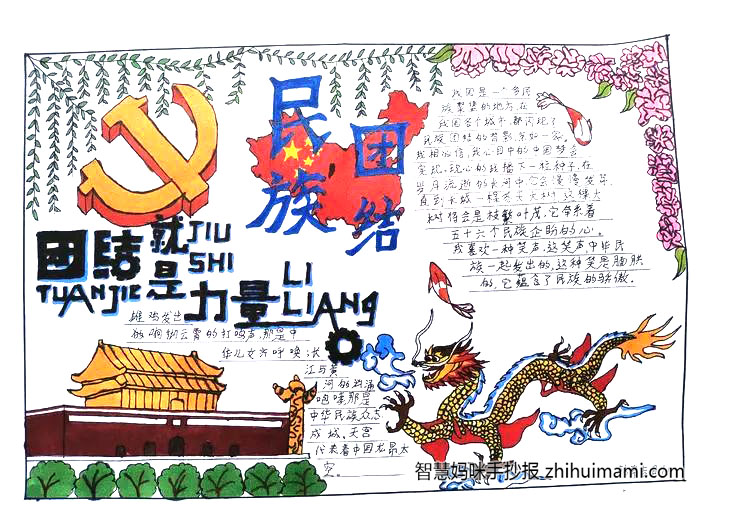 民族
团结
团结就是力量
TUANJIE JIU SHI LI LIANG
我国是一个多民
族聚集的地方,在
我国各个城市,都闪现了
民族团结的背影,亲如一家。
我相信,我心目中的中国梦会
实现,我心的
岁月流逝的长河中
直到长城一样
树将会是枝繁叶茂,它带来着
五十六个民族企盼的心。
我喜欢一种笑声,这笑声中华民
族一起发出的,这种笑是
的,它蕴含了民族的骄傲。
雄鸡发出
响彻云霄的打鸣声,那是中
华儿女齐呼唤,长
江与黄
河的汹涌
咆哮,那是
中华民族众志
成城,天宫
代表着中国龙昂太
空。
智慧妈咪手抄报.zhihuimami.com